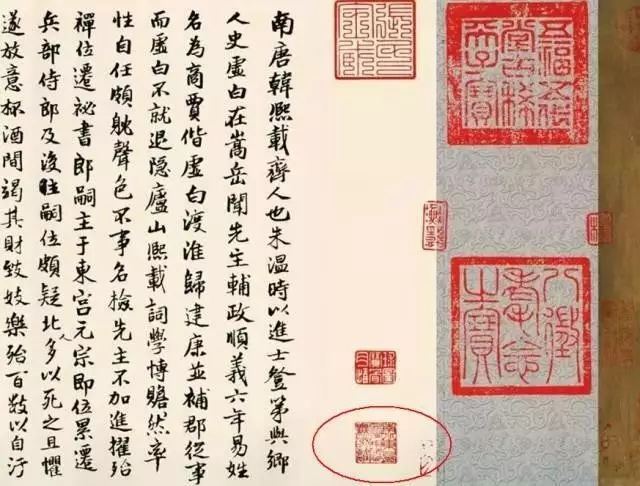 五福五代堂古稀天子寶
八徵耄念之寶
南唐韓熙載齊人也朱溫時以進士登第與鄉
人史虛白在嵩岳聞先主輔政順義六年易姓
名為商賈偕虛白渡淮歸建康並補郡從事
而虛白不就退隱廬山熙載詞學博贍然率
性自任頗躭聲色不事名檢先主不加進擢殆
禪位遷祕書郎嗣主于東宮元宗即位累遷
兵部侍郎及後主嗣位頗疑北人多以死之且懼
遂放意杯酒間竭其財致妓樂殆百數以自汙